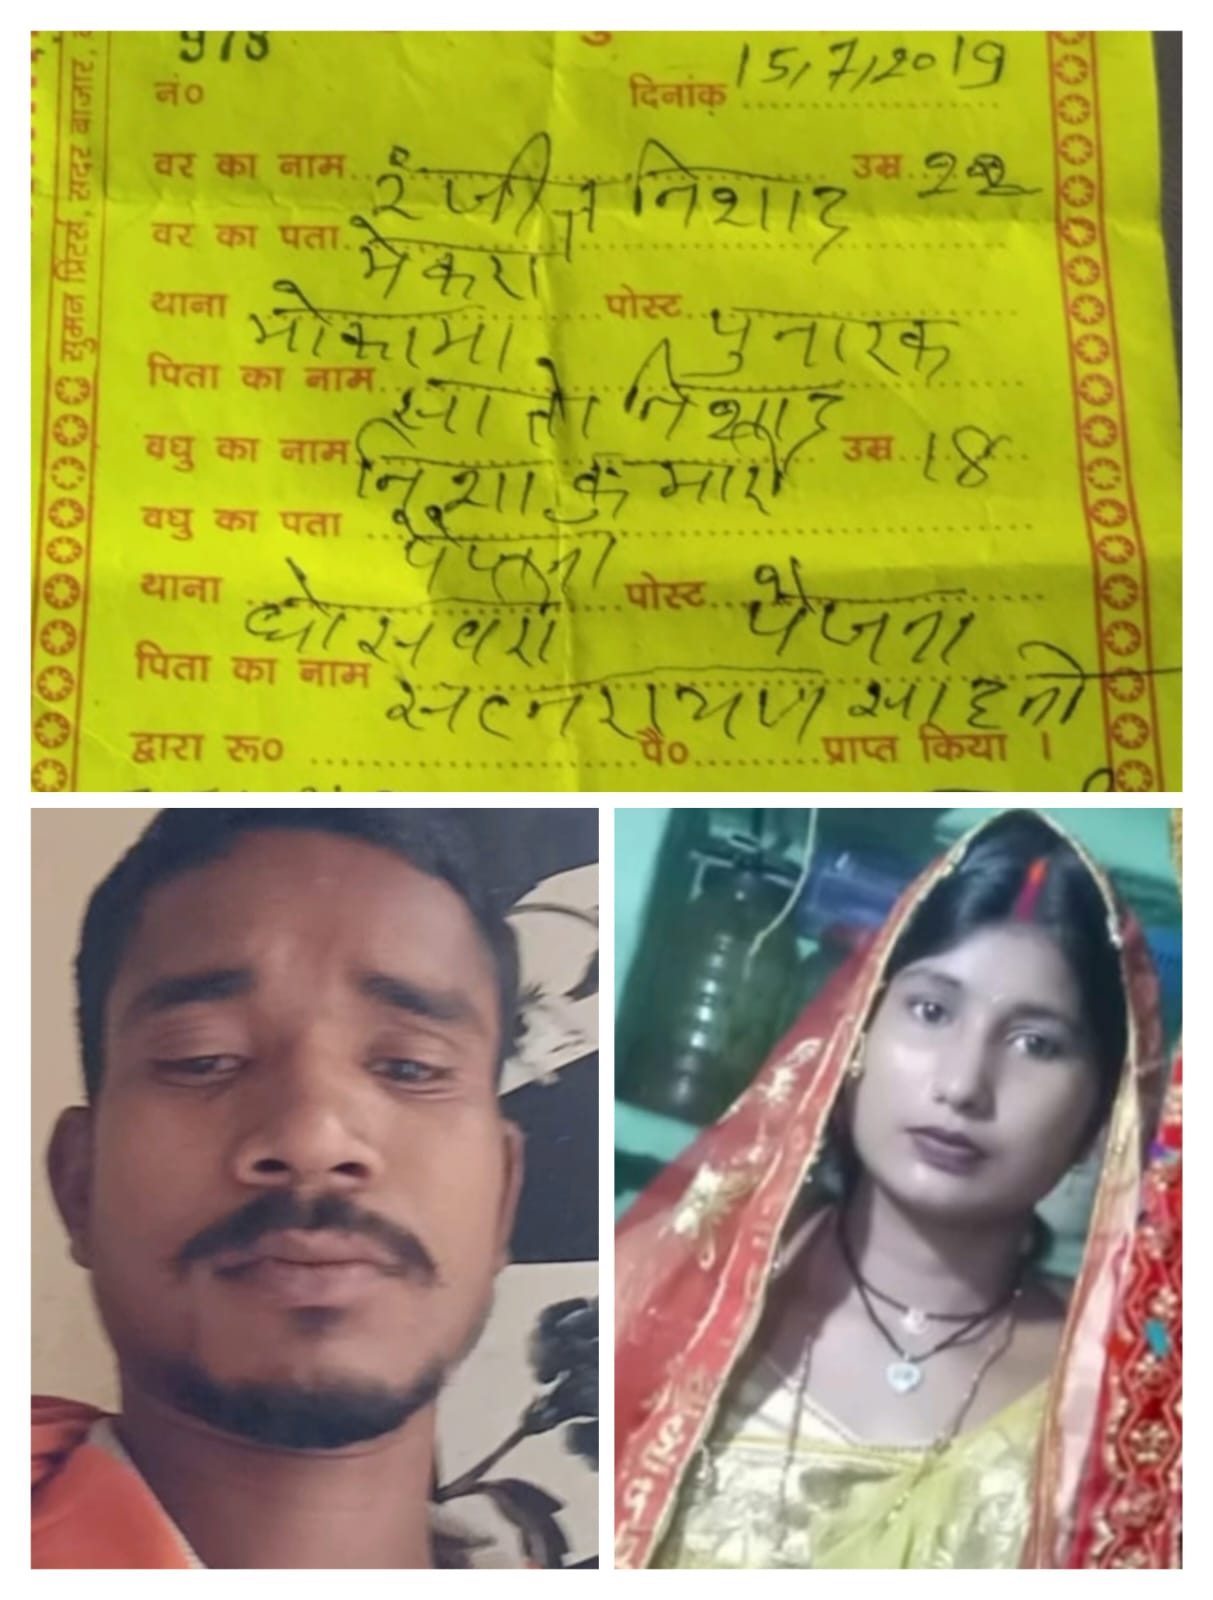 978
नं०
दिनांक 15/7/2019
वर का नाम रंजीत निशाद उम्र 22
वर का पता मेकरा
थाना मोकामा पोस्ट पुनारक
पिता का नाम सातो निशाद
वधु का नाम निशा कुमारी उम्र 18
वधु का पता पैजना
थाना घोसवरी पोस्ट पैजना
पिता का नाम सत्नरायण साहनी
द्वारा रू० पै० प्राप्त किया ।
सुमन प्रिंटर्स, सदर बाजार,